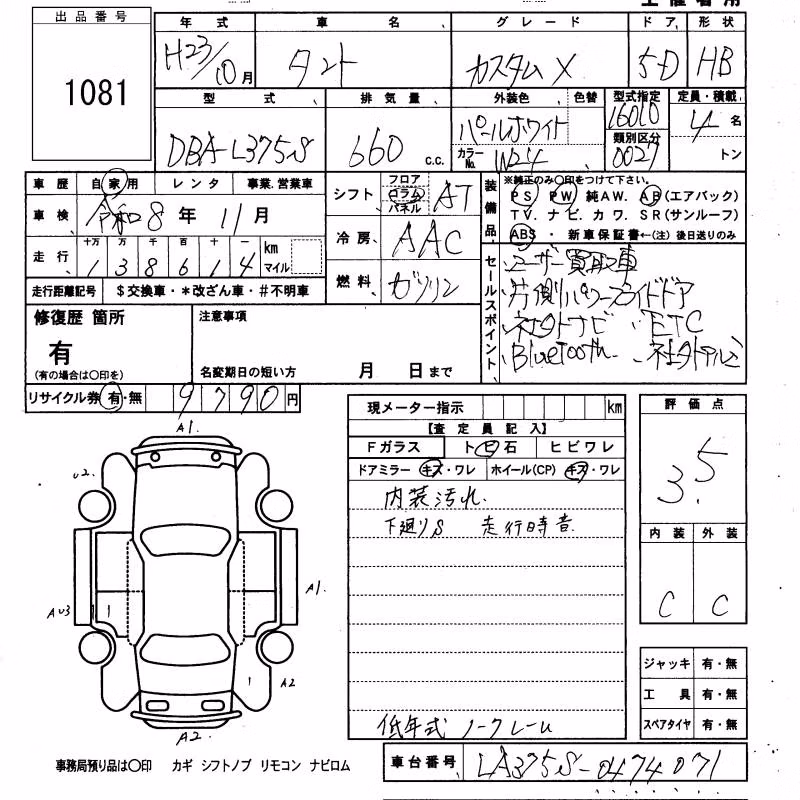 出品番号
1081
年式 車名 グレード ドア 形状
H23/10月 タント カスタムX 5-D HB
型式 排気量 外装色 色替 型式指定 定員・積載
DBA-L375S 660 c.c. パールホワイト 16010 4 名
カラーNo. W24 類別区分 0027 トン
車歴 自家用 レンタ 事業.営業車
車検 令和8年 11月
走行 十万 万 千 百 十 一 km マイル
1 3 8 6 1 4
走行距離記号 $交換車・*改ざん車・#不明車
シフト フロア コラム パネル AT
冷房 AAC
燃料 ガソリン
装備品 ※純正のみ〇印をつけて下さい。
PS PW 純AW. AB(エアバック)
TV. ナビ. カワ. SR(サンルーフ)
ABS・新車保証書←(注)後日送りのみ
セールスポイント ユーザー買取車
片側パワースライドドア
社外ナビ・ETC
Bluetooth 社外アルミ
修復歴 箇所
有
(有の場合は〇印を)
注意事項
名変期日の短い方 月 日まで
リサイクル券 有・無 9790円
現メーター指示 km
【査定員記入】
Fガラス トビ石 ヒビワレ
ドアミラー キズ・ワレ ホイール(CP) キズ・ワレ
内装汚れ.
下廻りS 走行時音
低年式 ノークレーム
評価点
3.5
内装 外装
C C
ジャッキ 有・無
工具 有・無
スペアタイヤ 有・無
A1.
U2.
A1.
AU3
A2
A2.
事務局預り品は〇印 カギ シフトノブ リモコン ナビロム
車台番号 LA375S-0474071